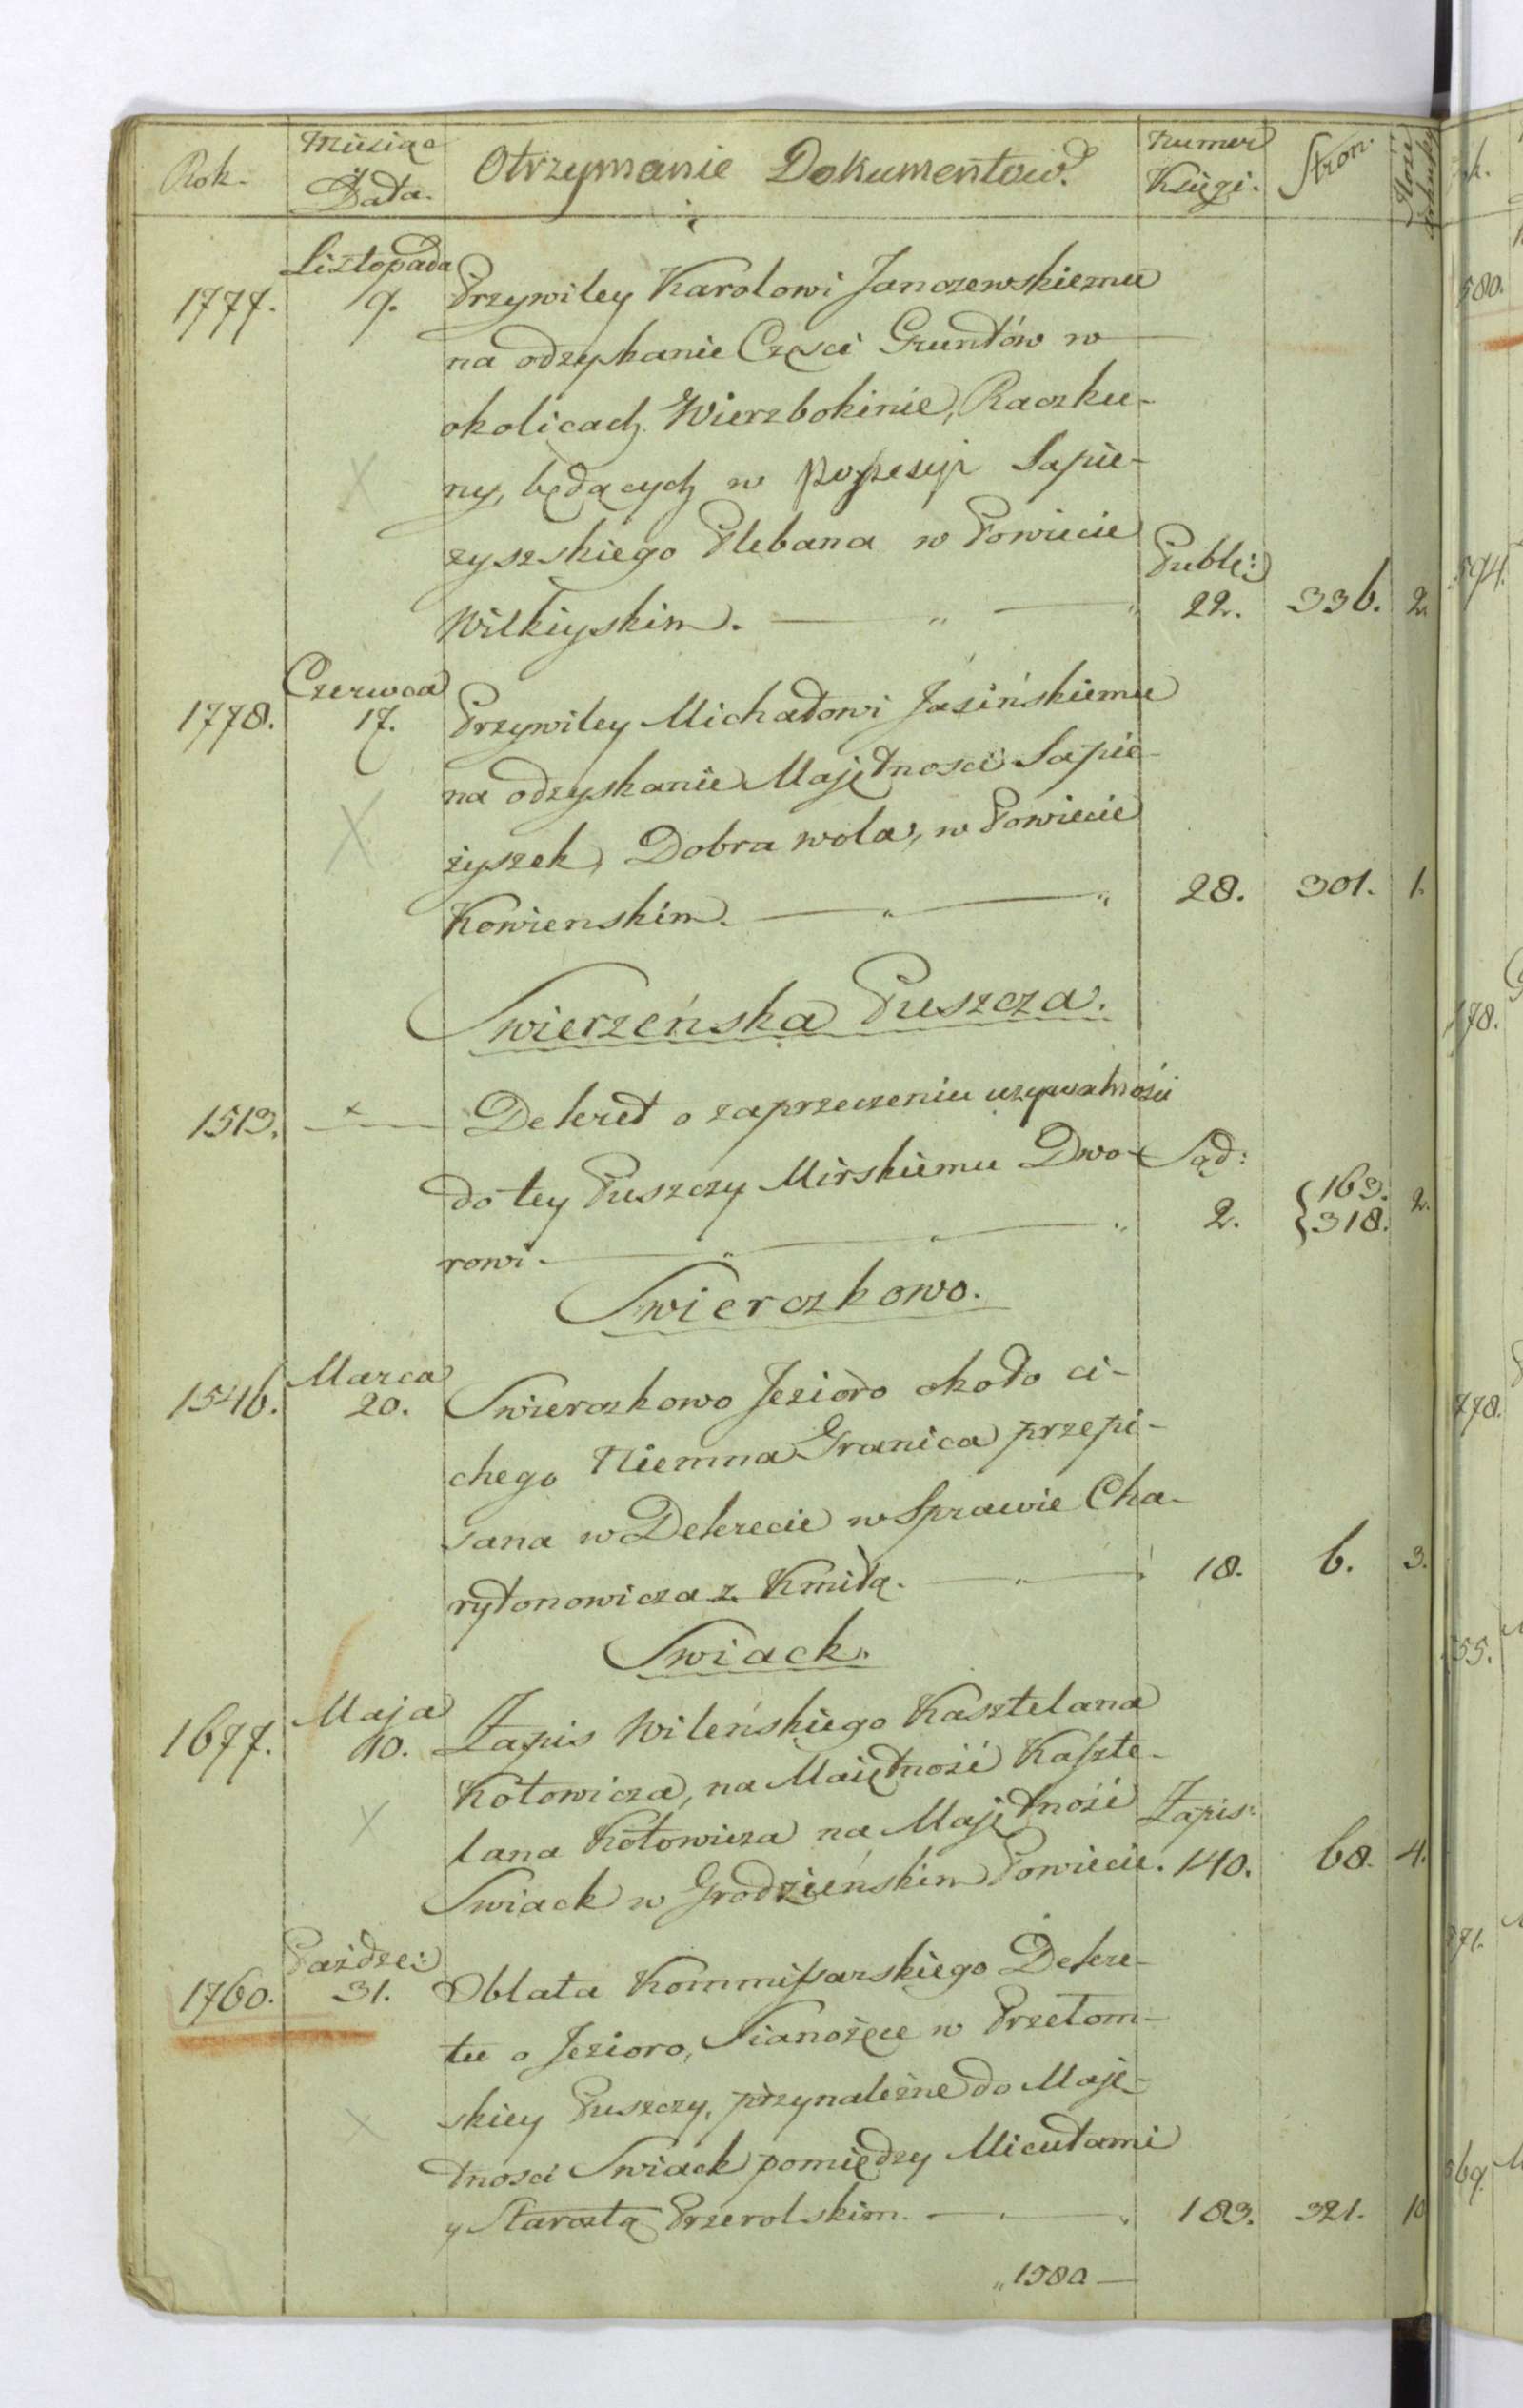 Rok. Miesiąc Data. Otrzymanie Dokumentow. Numer Księgi. Stron. Ilość
Listopada
1777. 9. Przywiley Karolowi Janczewskiemu
na odzyskanie Częsci Gruntów w
okolicach Wierzbokinie, Raczku-
ny, będących w possesyi Sapie-
zyszskiego Plebana w Powiecie Publ:
Wilkiyskim. 22. 336. 2.
Czerwca
1778. 17. Przywiley Michałowi Jasińskiemu
na odzyskanie Majętnosci Sapie-
żyszek, Dobra wola, w Powiecie
Kowienskim. 28. 301. 1.
Swierzeńska Puszcza.
1513. x Dekret o zaprzeczeniu używalności
do tey Puszczy Mirskiemu Dwo- Sąd: 163. 2.
rowi. 2. 318.
Swierczkowo.
Marca
1546. 20. Swierczkowo Jezioro około ci-
chego Niemna Granica przepi-
sana w Dekrecie w Sprawie Cha-
rytonowicza z Kmitą. 18. 6. 3.
Swiack.
Maja
1677. 10. Zapis Wileńskiego Kasztelana
Kotowicza, na Maiętność Kaszte-
lana Kotowicza na Majętność Zapis:
Swiack w Grodzieńskim Powiecie. 140. 68. 4.
Paźdze:
1760. 31. Oblata Kommissarskiego Dekre-
tu o Jezioro, Sianożęcie w Przełom-
skiey Puszczy, przynależne do Maję-
tnosci Swiack pomiędzy Micutami
y Starostą Przerolskim. 183. 321. 10